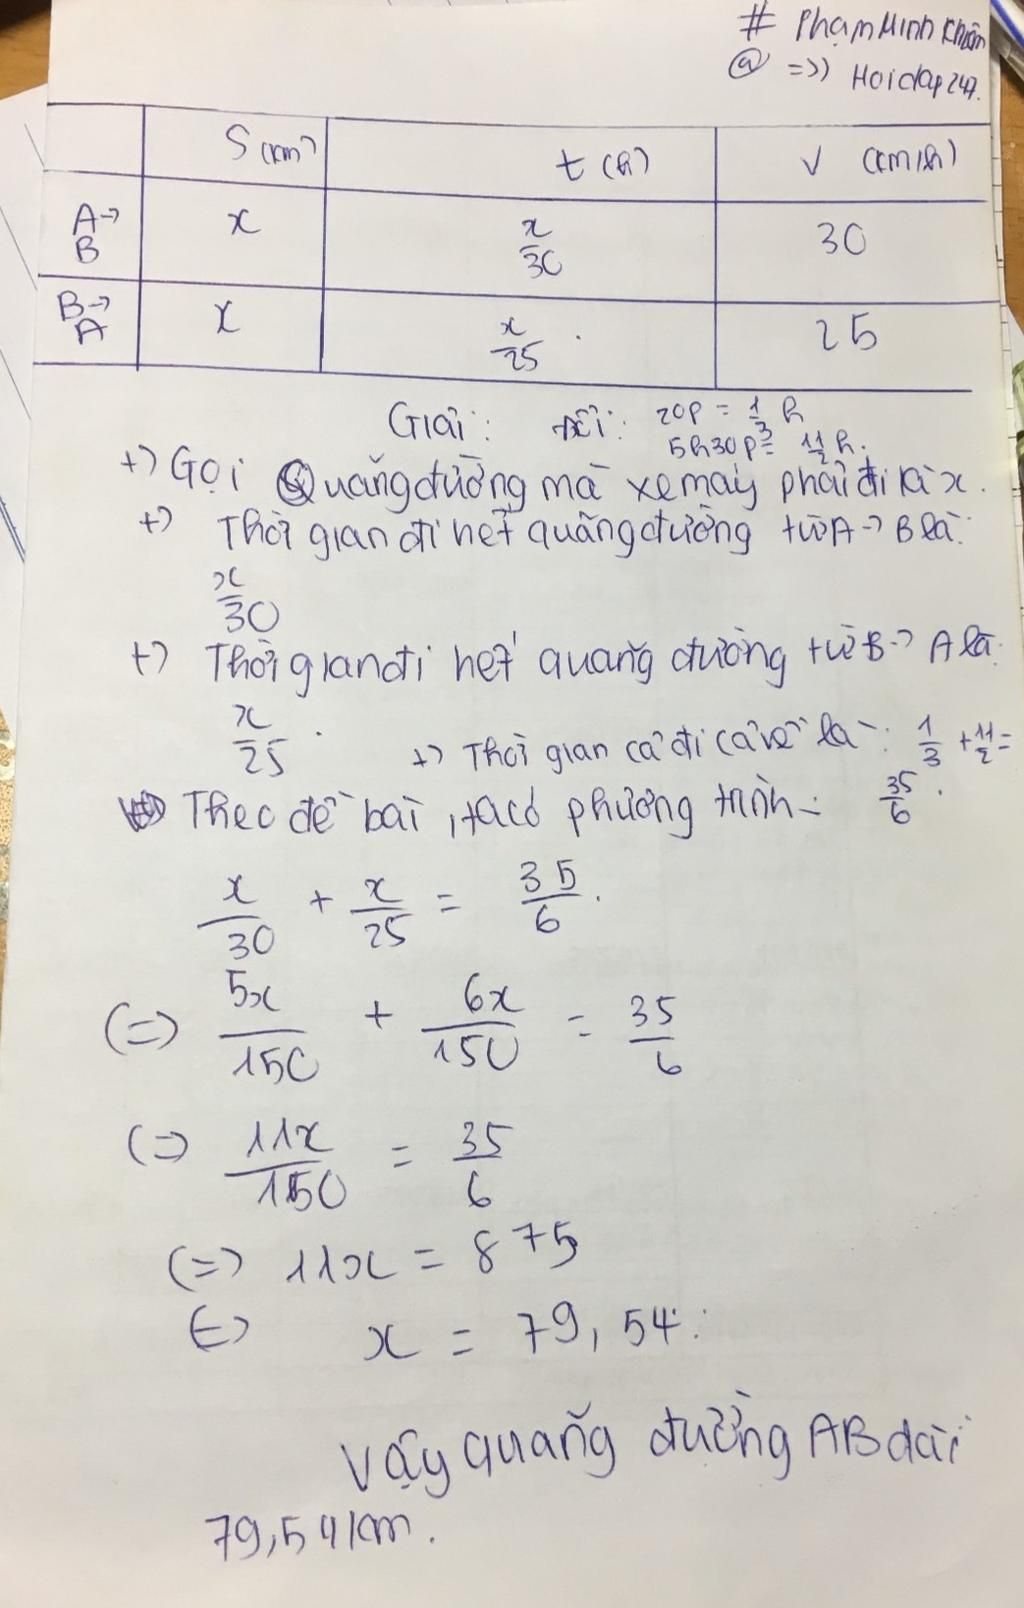 # Phạm Minh Khiêm
@ =>) Hoidap247.
S (km) t (h) v (km/h)
A→ B x x/30 30
B→ A x x/25 25
Giải: Đổi: 20p = 1/3 h
5h30p = 11/2 h.
+) Gọi Quãng đường mà xe máy phải đi là x.
+) Thời gian đi hết quãng đường từ A→ B là:
x/30
+) Thời gian đi hết quãng đường từ B→ A là:
x/25. +) Thời gian cả đi cả về là: 1/3 + 11/2 =
35/6.
Theo đề bài, ta có phương trình:
x/30 + x/25 = 35/6.
(=) 5x/150 + 6x/150 = 35/6
(=) 11x/150 = 35/6
(=) 11x = 875
(=) x = 79,54.
Vậy quãng đường AB dài
79,54km.